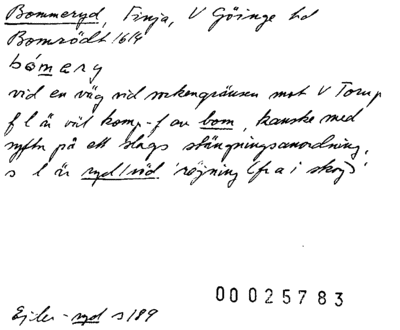 Bommeryd, Finja, V Göinge hd
Bomrödt 1614
bómery
vid en väg vid sockengränsen mot V Torup
f l är väl komp-f av bom, kanske med
syftn på ett slags stängningsanordning,
s l är ryd/röd 'röjning (fr a i skog)'
00025783
Ejler - ryd s 189